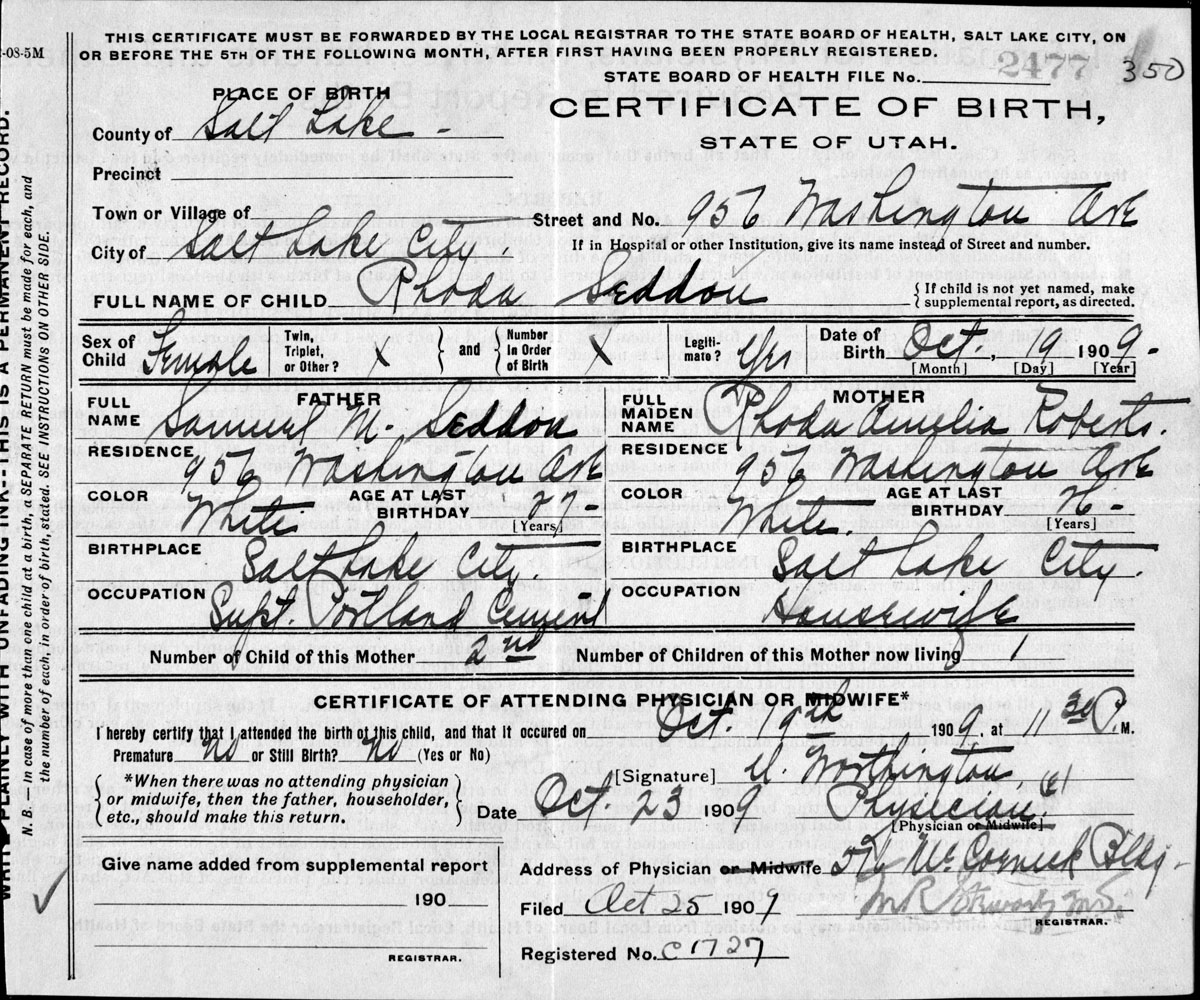 -08-5M
THIS CERTIFICATE MUST BE FORWARDED BY THE LOCAL REGISTRAR TO THE STATE BOARD OF HEALTH, SALT LAKE CITY, ON
OR BEFORE THE 5TH OF THE FOLLOWING MONTH, AFTER FIRST HAVING BEEN PROPERLY REGISTERED.
STATE BOARD OF HEALTH FILE No. 2477 350
PLACE OF BIRTH
CERTIFICATE OF BIRTH,
STATE OF UTAH.
County of Salt Lake -
Precinct
Town or Village of
Street and No. 956 Washington Ave
City of Salt Lake City
If in Hospital or other Institution, give its name instead of Street and number.
FULL NAME OF CHILD Rhoda Seddon
{ If child is not yet named, make
supplemental report, as directed.
Sex of Child Female Twin, Triplet, or Other? X } and { Number In Order of Birth X Legiti- mate? Yes Date of Birth Oct., 19 1909-
[Month] [Day] [Year]
FATHER
FULL NAME Samuel M. Seddon
RESIDENCE 956 Washington Ave
COLOR White AGE AT LAST BIRTHDAY 27-
[Years]
BIRTHPLACE Salt Lake City.
OCCUPATION Supt. Portland Cement
MOTHER
FULL MAIDEN NAME Rhoda Amelia Roberts.
RESIDENCE 956 Washington Ave
COLOR White. AGE AT LAST BIRTHDAY 26-
[Years]
BIRTHPLACE Salt Lake City.
OCCUPATION Housewife
Number of Child of this Mother 2nd Number of Children of this Mother now living 1
CERTIFICATE OF ATTENDING PHYSICIAN OR MIDWIFE*
I hereby certify that I attended the birth of this child, and that it occured on Oct. 19th 1909, at 11 30 P. M.
Premature no or Still Birth? no (Yes or No)
*When there was no attending physician
or midwife, then the father, householder,
etc., should make this return.
[Signature] Worthington
Date Oct. 23 1909 Physician
[Physician or Midwife]
Give name added from supplemental report
190
REGISTRAR.
Address of Physician or Midwife Bldg-
Filed Oct 25 1909
REGISTRAR.
Registered No. C1727
WRITE PLAINLY WITH UNFADING INK--THIS IS A PERMANENT RECORD.
N. B. In case of more than one child at a birth, a SEPARATE RETURN must be made for each, and
the number of each, in order of birth, stated. SEE INSTRUCTIONS ON OTHER SIDE.